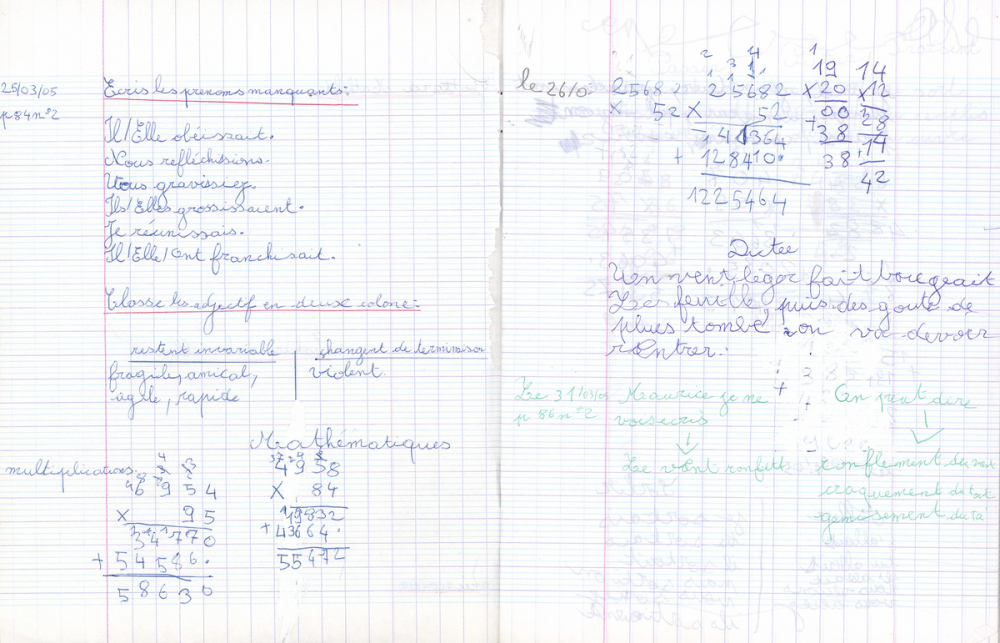 25/03/05
p84n°2
Ecris les prenoms manquants:
Il/Elle obéissait.
Nous reflèchissions.
Vous gravissiez.
Ils/Elles grossissaient.
Je réunissais.
Il/Elle/Ont franchisait.
Classe les adjectif en deux colone:
restent invariable
changent de terminaison
fragile, amical,
violent.
agile, rapide
Mathématiques
multiplications
6 9 5 4
X 9 5
3 4 7 7 0
+ 5 4 5 8 6 .
5 8 6 3 0
4 9 5 8
X 84
19832
+ 43664.
55472
le 26/0
25682
X 52
25682
X 52
128410.
1225464
19
X 20
00
+ 38
38
14
X 12
28
+ 14
42
Dictée
Un vent léger fait bougeait
Les feuille, puis des goute de
plues tombe, on va devoir
rentrer.
Le 31/03/05 Maurice je ne
p 86n°2
On peut dire
Le vent
ronflement du
craquement du
gemisement du